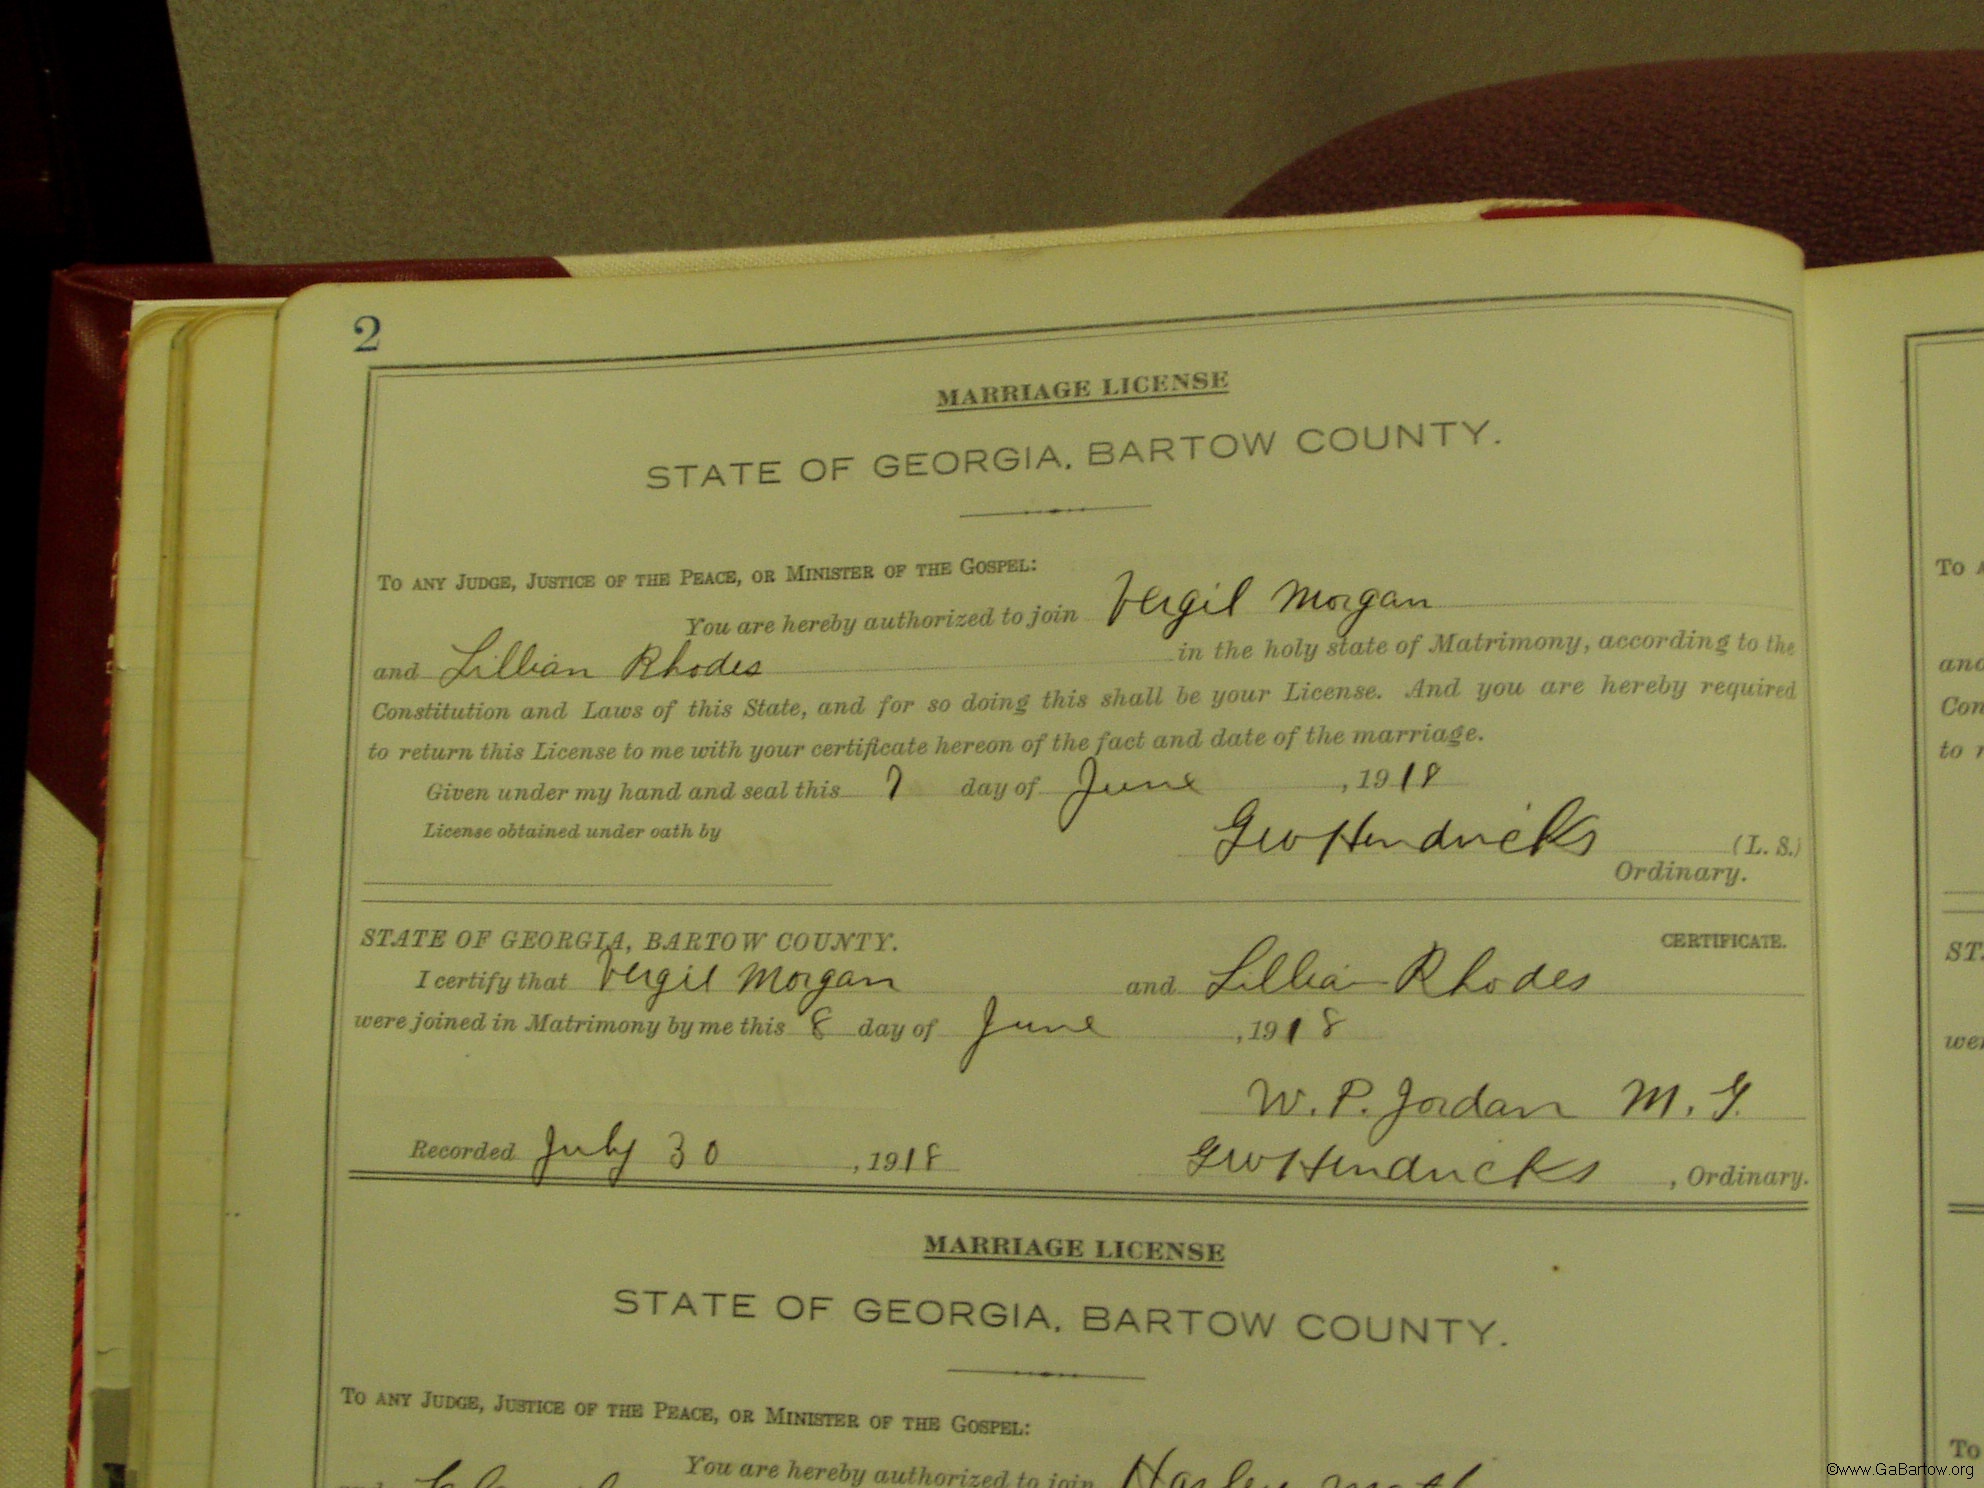 2
MARRIAGE LICENSE
STATE OF GEORGIA, BARTOW COUNTY.
TO ANY JUDGE, JUSTICE OF THE PEACE, OR MINISTER OF THE GOSPEL:
You are hereby authorized to join Vergil Morgan
and Lillian Rhodes in the holy state of Matrimony, according to the
Constitution and Laws of this State, and for so doing this shall be your License. And you are hereby required
to return this License to me with your certificate hereon of the fact and date of the marriage.
Given under my hand and seal this 7 day of June, 1918
License obtained under oath by
Geo Hendricks (L. S.)
Ordinary.
STATE OF GEORGIA, BARTOW COUNTY. CERTIFICATE.
I certify that Vergil Morgan and Lillian Rhodes
were joined in Matrimony by me this 8 day of June, 1918
W. P. Jordan M. G.
Recorded July 30, 1918 Geo Hendricks, Ordinary.
MARRIAGE LICENSE
STATE OF GEORGIA, BARTOW COUNTY.
TO ANY JUDGE, JUSTICE OF THE PEACE, OR MINISTER OF THE GOSPEL:
You are hereby authorized to join Harley
To
and
Con
to
ST.
To
©www.GaBartow.org